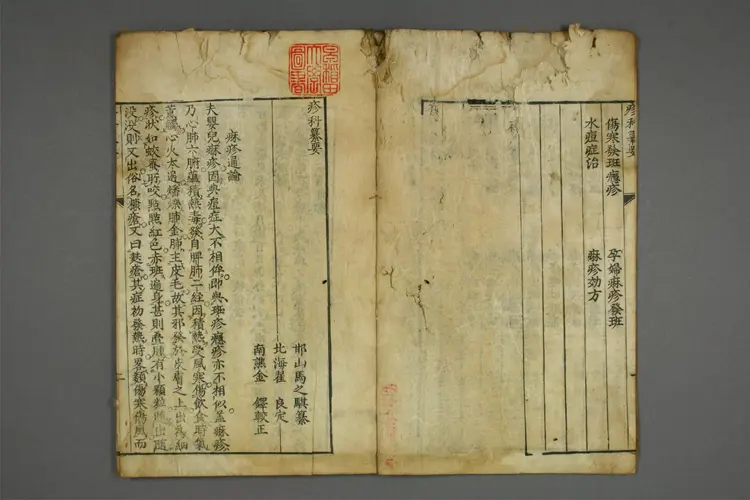 疹科纂要
傷寒發斑癮疹 孕婦痲疹發斑
水痘症治 痲疹効方
疹科纂要
邯山馬之騏纂
北海翟 良定
南譙金 鐸較正
痲疹通論
夫嬰兒痲疹固與痘症大不相侔即與斑疹癮疹亦不相似蓋痲疹
乃心肺六腑蘊積熱毒發自脾肺二經因積熱受風寒傷飲食時氣
心火太過燔爍肺金肺主皮毛故其邪發於皮膚之上出
疹狀如蚊蚤所咬點點紅色赤斑遍身甚則疊腫有小顆粒隨出隨
沒沒則又出俗名 瘡又曰麩瘡其症初發熱時畧類傷寒傷風而